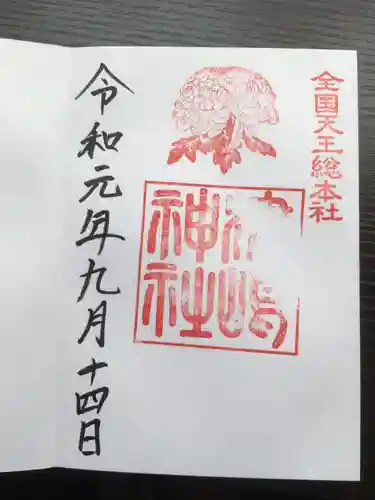 全国天王総本社
嶋
神社
令和元年九月十四日